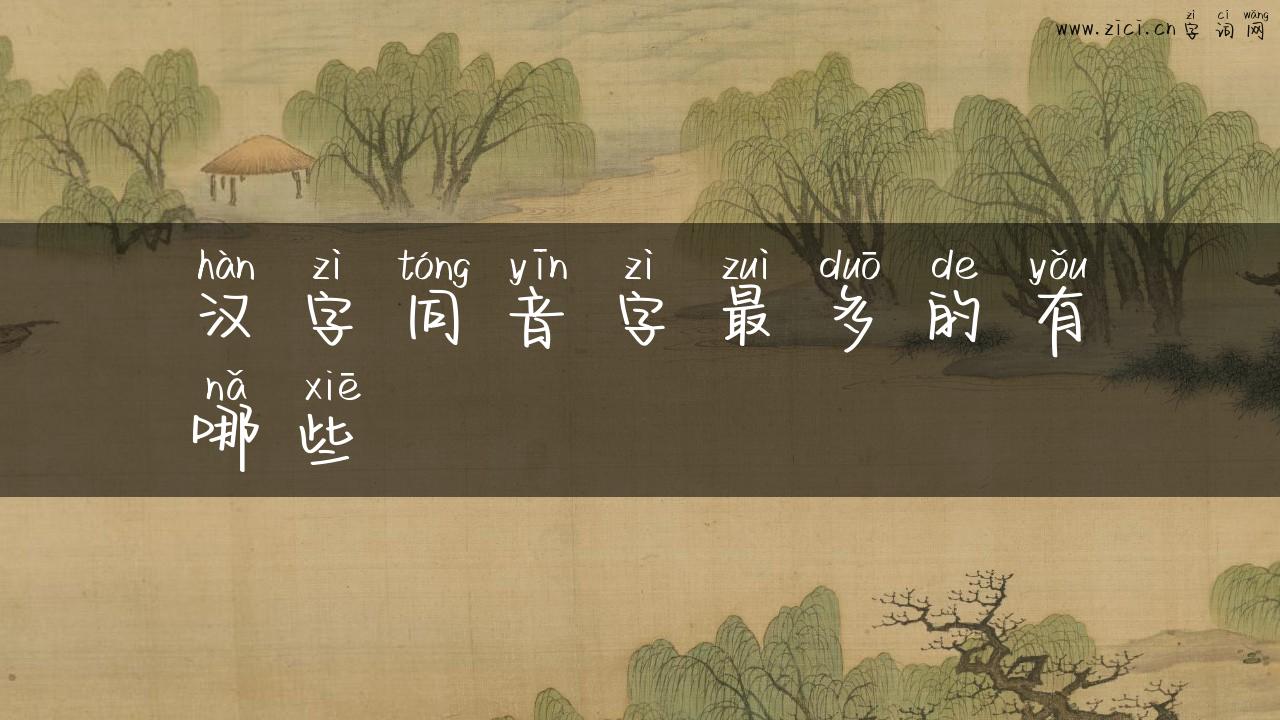 zì cí wǎng
www.zici.cn 字 词 网
hàn zì tóng yīn zì zuì duō de yǒu
汉 字 同 音 字 最 多 的 有
nǎ xiē
哪 些